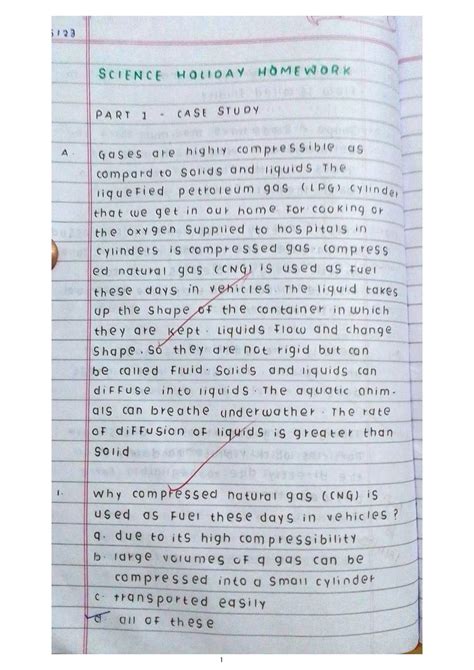 5123
SCIENCE HOLIDAY HOMEWORK
PART 1 - CASE STUDY
A. Gases are highly compressible as
compard to solids and liquids The
liquefied petroleum gas (LPG) cylinder
that we get in our home for cooking or
the oxygen supplied to hospitals in
cylinders is compressed gas. compress
ed natural gas (CNG) is used as fuel
these days in vehicles. The liquid takes
up the shape of the container in which
they are kept. liquids flow and change
shape. so they are not rigid but can
be called fluid. Solids and liquids can
diffuse into liquids. The aquatic anim-
als can breathe underwather. The rate
of diffusion of liquids is greater than
solid
1. why compressed natural gas (CNG) is
used as fuel these days in vehicles?
a. due to its high compressibility
b. large volumes of a gas can be
compressed into a small cylinder
c. transported easily
d. all of these
1